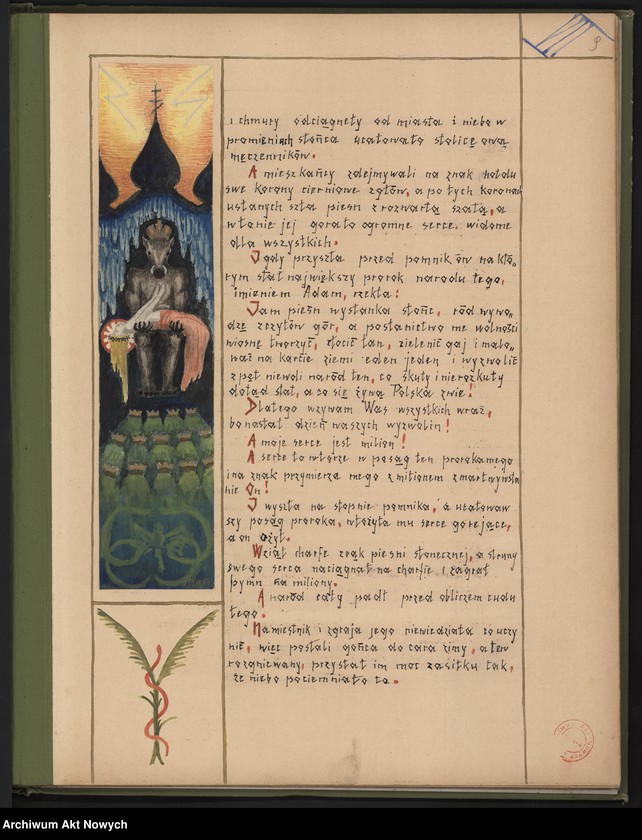 9
i chmury odciągnęły od miasta i niebo w
promieniach słońca ucałowało stolicę ową
męczenników.
A mieszkańcy zdejmywali na znak hołdu
swe korony cierniowe z głów, a po tych koronach
usłanych szła pieśń z rozwartą szatą, a
w łonie jej gorało ogromne serce. widome
dla wszystkich.
I gdy przyszła przed pomnik ów na któ„
rym stał największy prorok narodu tego,
imieniem Adam, rzekła:
Jam pieśń wysłanka słońc, ród wywo„
dzę ze zytów gór, a posłanictwo me wolności
wiosnę tworzyć, złocić łan, zielenić gaj i malo„
wać na karcie ziemi eden jeden i wyzwolić
z pęt niewoli naród ten, co skuty i nierozkuty
dotąd stał, a co się żywą Polską zwie!
Dlatego wzywam Was wszystkich wraz,
bo nastał dzień waszych wyzwolin!
A moje serce jest milion!
A serce to włożę w posąg ten proroka mego
i na znak przymierza mego z milionem zmartwywsta
nie On!
I wyszła na stopnie pomnika, a ucałowaw
szy posąg proroka, włożyła mu serce gorejące,
a on ożył.
Wziął charfę znak pieśni słonecznej, a struny
swego serca naciągnął na charfie i zagrał
hymn na miliony.
A naród cały padł przed obliczem cudu
tego.
Namiestnik i zgraja jego niewiedziała co uczy
nić, więc posłali gońca do cara zimy, a ten
rozgniewany, przysłał im moc zasiłku tak,
że niebo pociemniało to.
Archiwum Akt Nowych